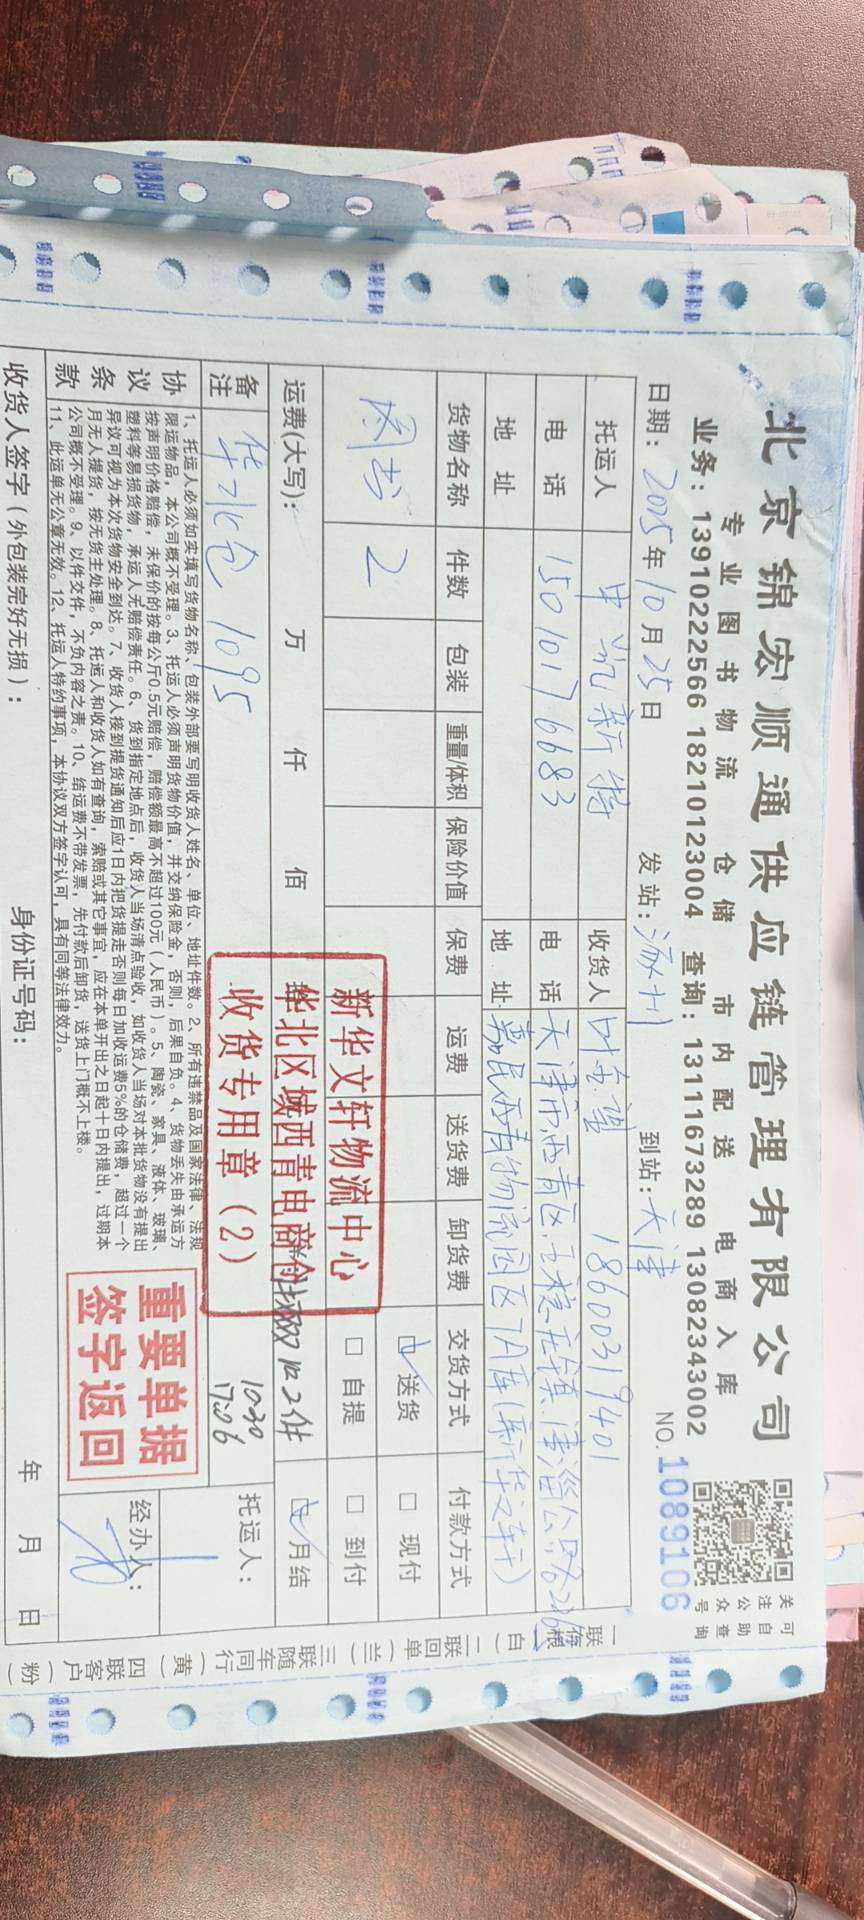 北京锦宏顺通供应链管理有限公司
专业图书物流 仓储 市内配送 电商入库
业务：13910222566 18210123004 查询：13111673289 13082343002
关注公众号
可自助查询
日期：2025年10月25日 发站：涿州 到站：天津 NO.1089106
托运人 中凯新特 收货人 18600319401
电话 15010176683 电话 天津市西青区
地址 地址 嘉民西青物流园区7A库(新华文轩)
货物名称 件数 包装 重量/体积 保险价值 保费 运费 送货费 卸货费 交货方式 付款方式
图书 2 送货 现付
自提 到付
运费(大写)： 万 仟 佰 月结
新华文轩物流中心
华北区域西青电商仓
收货专用章（2）
2件
10.30
17:06
备注 华北仓 1095
托运人：
协议条款
1、托运人必须如实填写货物名称、包装外部要写明收货人姓名、单位、地址件数。2、所有违禁品及国家法律、法规
限运物品，本公司概不受理。3、托运人必须声明货物价值，并交纳保险金，否则，后果自负。4、货物丢失由承运方
按声明价格赔偿，未保价的按每公斤0.5元赔偿，赔偿额最高不超过100元（人民币）。5、陶瓷、家具、液体、玻璃、
塑料等易损货物，承运人无赔偿责任。6、货到指定地点后，收货人当场清点验收，如收货人当场对本批货物没有提出
异议可视为本次货物安全到达。7、收货人接到提货通知后应1日内把货提走否则每日加收运费5%的仓储费，超过一个
月无人提货，按无货主处理。8、托运人和收货人如有查询，索赔或其它事宜，应在本单开出之日起十日内提出，过期本
公司概不受理。9、以件交件，不负内容之责。10、结运费不带发票，先付款后卸货，送货上门概不上楼。
11、此运单无公章无效。12、托运人特约事项，本协议双方签字认可，具有同等法律效力。
重要单据
签字返回
经办人：
收货人签字（外包装完好无损）： 身份证号码： 年 月 日
一联存根（白） 二联回单（兰） 三联随车同行（黄） 四联客户（粉）